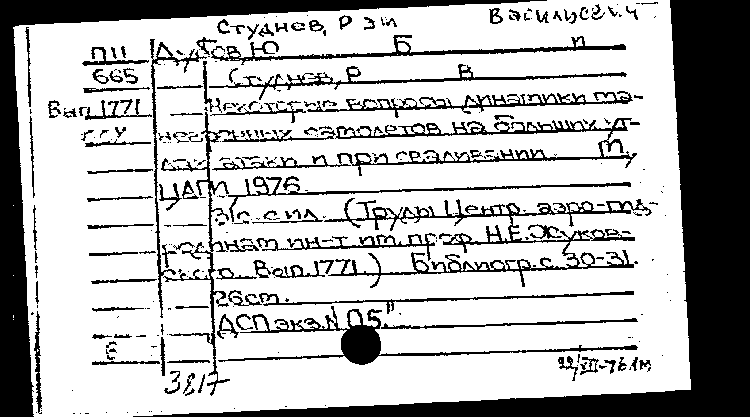 Студнев, Р
П11 Дудов, Ю Б п
665 Студнев, Р В
Вып. 1771 Некоторые вопросы динамики ма-
невренных самолетов на больших уг-
лах атаки и при сваливании. М,
ЦАГИ, 1976.
31с. с ил. (Труды Центр. аэро-гид-
родинам ин-т им. проф. Н.Е. Жуков-
ского. Вып. 1771.) Библиогр. с. 30-31.
26см.
"ДСП экз. N 05."
Б
3817 22/VII-76